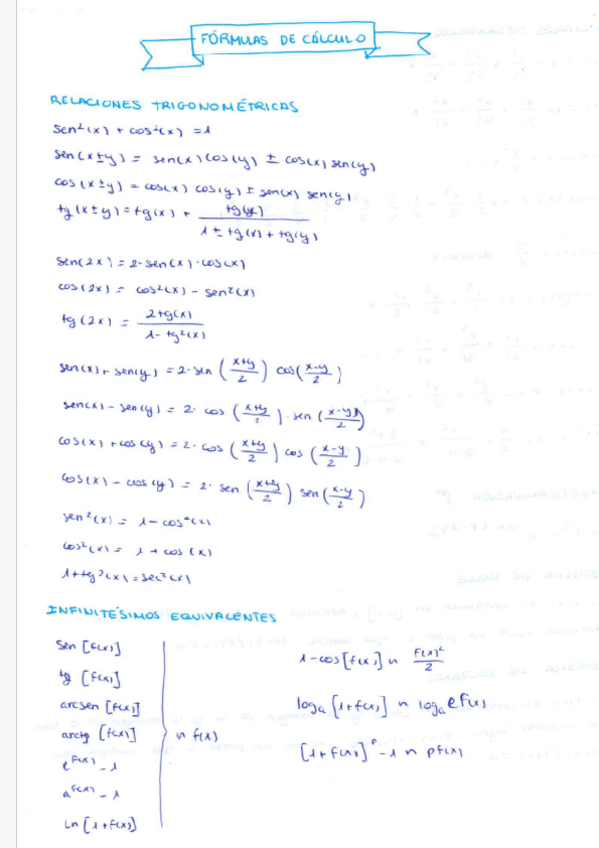 FÓRMULAS DE CÁLCULO
RELACIONES TRIGONOMÉTRICAS
sen²(x) + cos²(x) = 1
sen(x±y) = sen(x) cos(y) ± cos(x) sen(y)
cos(x±y) = cos(x) cos(y) ± sen(x) sen(y)
tg(x±y) = tg(x) + tg(y) / 1 ± tg(x) + tg(y)
sen(2x) = 2·sen(x)·cos(x)
cos(2x) = cos²(x) - sen²(x)
tg(2x) = 2tg(x) / 1 - tg²(x)
sen(x) + sen(y) = 2·sen (x+y / 2) cos (x-y / 2)
sen(x) - sen(y) = 2· cos (x+y / 2) · sen (x-y / 2)
cos(x) + cos(y) = 2· cos (x+y / 2) cos (x-y / 2)
cos(x) - cos(y) = 2· sen (x+y / 2) sen (x-y / 2)
sen²(x) = 1 - cos²(x)
cos²(x) = 1 + cos(x)
1 + tg²(x) = sec²(x)
INFINITÉSIMOS EQUIVALENTES
sen [f(x)]
tg [f(x)]
arcsen [f(x)]
arctg [f(x)]
e^f(x) - 1
a^f(x) - 1
Ln [1 + f(x)]
∼ f(x)
1 - cos [f(x)] ∼ f(x)² / 2
logₐ [1 + f(x)] ∼ logₐ e f(x)
[1 + f(x)]^p - 1 ∼ p f(x)